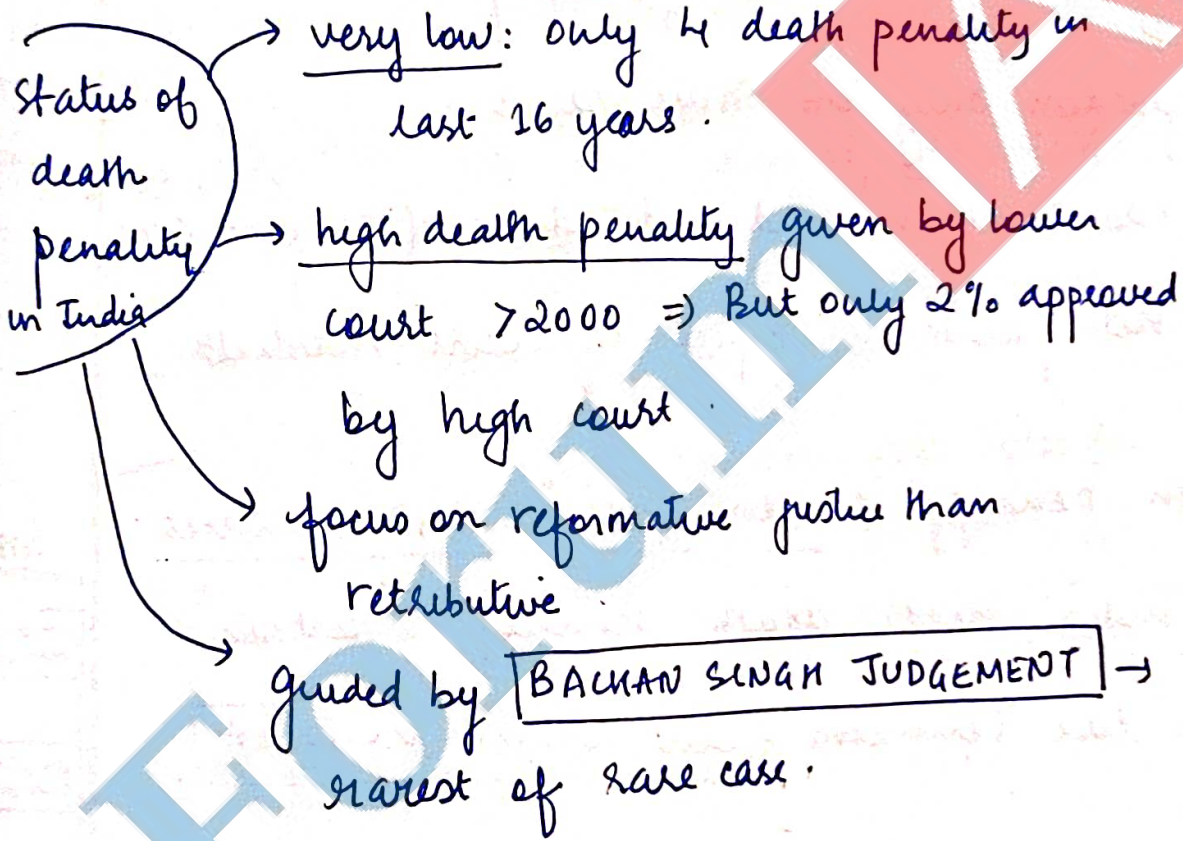 Status of
death
penality
in India
→ very low: only 4 death penality in
last 16 years.
→ high death penality given by lower
court >2000 ⇒ But only 2% approved
by high court.
→ focus on reformative justice than
retributive.
→ guided by BACHAN SINGH JUDGEMENT →
rarest of rare case.
Forum IA